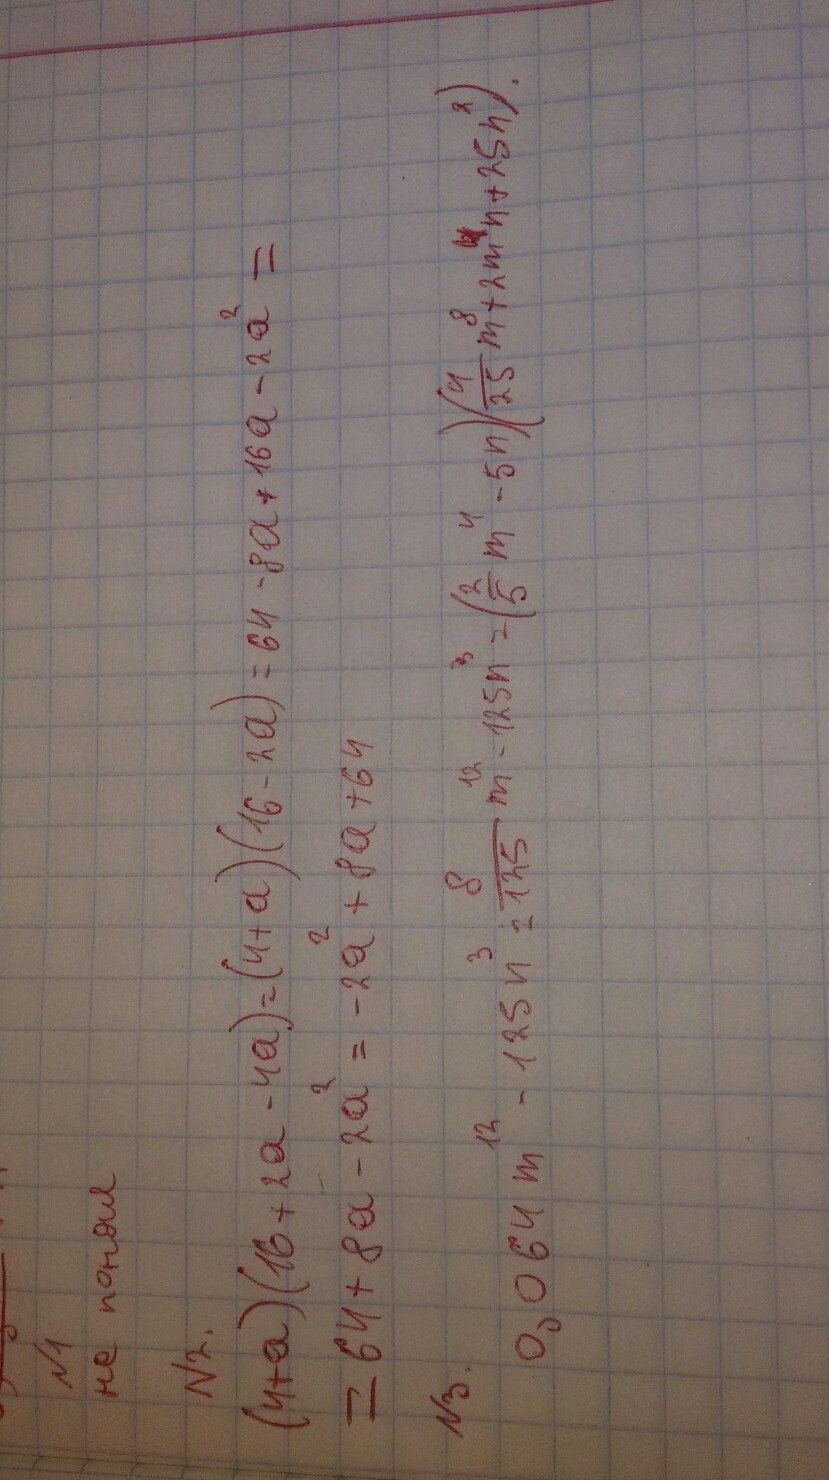 N1
не понял
N2.
(4+a)(16+2a-4a)=(4+a)(16-2a)=64-8a+16a-2a²=
=64+8a-2a²=-2a²+8a+64
N3.
0,064m¹²-125n³=8/125m¹²-125n³=(2/5m⁴-5n)(4/25m⁸+2m⁴n+25n²).